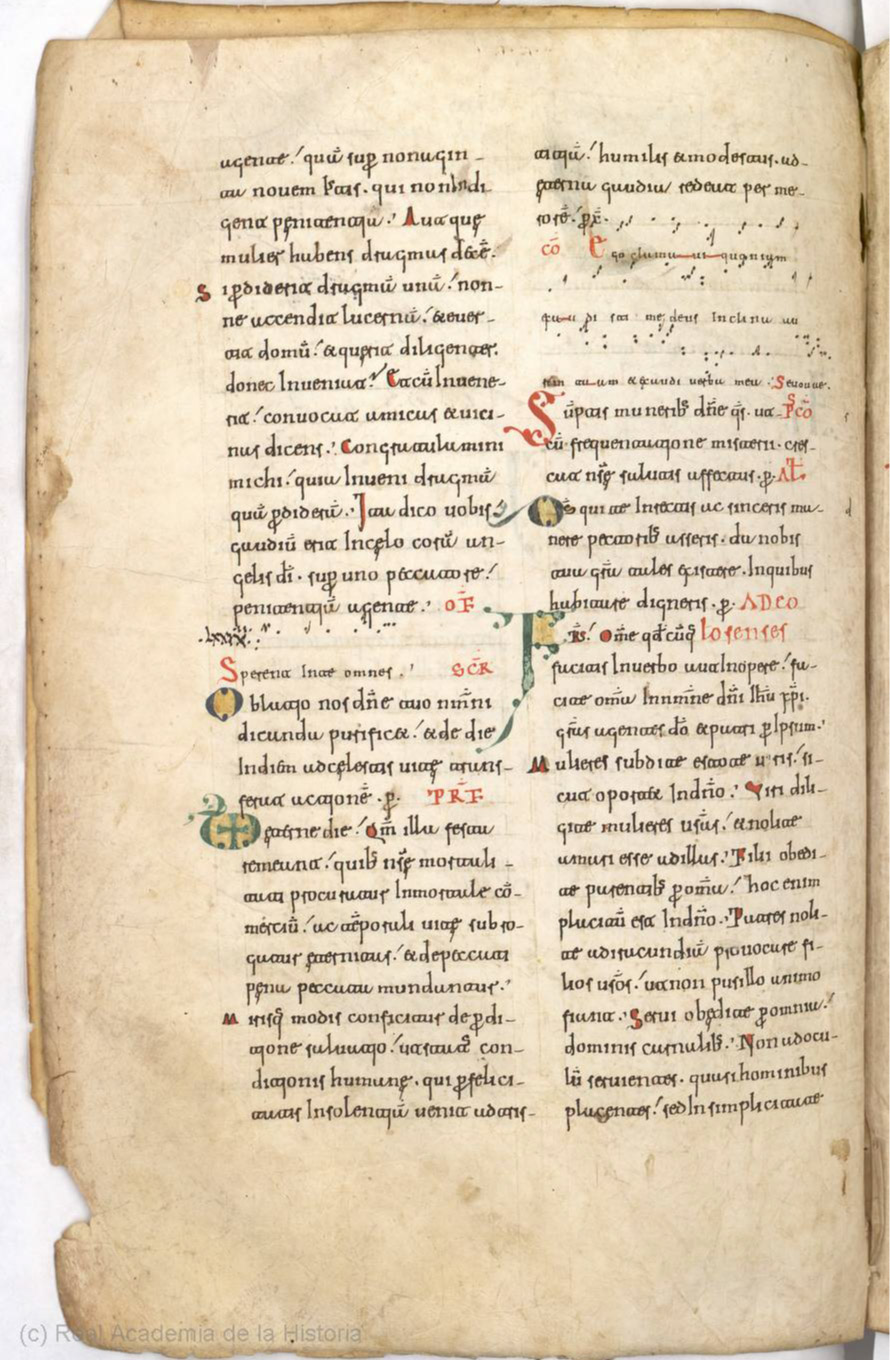 agente. quā sup̄ nonagin-
ta novem ĭstis. qui non indi-
gent pęnitentiā. Aut quę
mulier habens dragmas dece̅.
Si p̄diderit dragmā unā. non-
ne accendit lucernā. & ever-
tit domū. & querit diligenter.
donec Inveniat. Et cū Invene-
rit. convocat amicas & vici-
nas dicens. Congratulamini
michi. quia Inveni dragmā
quā p̄diderā. Ita dico vobis
gaudiū erit In cęlo corā an-
gelis dī. sup̄ uno peccatore.
penitentiā agente. OF̄
Sperent In te omnes. SCR̄
Oblatio nos dn̄e tuo nm̄ni
dicanda purific&. & de die
In diem ad cęlestis vitę trans-
ferat actionē. p̄. PRF
ęterne die. Qm̄ illa festa
remeant. quib; nr̄ę mortali-
tati procuratur Inmortale cō-
merciū. ac tēporali vitę subro-
gatur ęternitas. & de peccati
pęna peccata mundantur.
Mirisq̄ modis conficitur de p̄di-
tione salvatio. ut statꝰ con-
ditionis humanę. qui p̄ felici-
tatis Insolentiā venit ad tris-
titiā. humilis & modestus. ad-
ęterna gaudia redeat per me-
rorē. p̄ xp̄.
cō Ego clamavi quoniam
exaudisti me deus Inclina au
rem tuam & exaudi verba mea. Sevovae.
Sūptis munerib; dn̄e qs̄. ut PS̄CO
cū frequentatione misterii. cres-
cat nr̄ę salutis affectus. p̄. ALĪ
Ds̄ qui te In rectis ac sinceris ma-
nere pectorib; asseris. da nobis
tua grā tales existere. In quibus
habitare digneris. p̄. AD CO
FRS̄. Om̄e qd̄cūq̄ losenses
facitis In verbo aut In opere. fa-
cite omīa In nmn̄e dn̄i Ih̄u xp̄i.
grās agentes dō & patri p̄ Ipsum.
Mulieres subdite estote viris. si-
cut oport& In dn̄o. Viri dili-
gite mulieres vr̄as. & nolite
amari esse ad illas. Filii obedi-
te parentib; p̄ omīa. hoc enim
placitū est In dn̄o. Patres noli-
te ad iracundiā provocare fi-
lios vr̄os. ut non pusillo animo
fiant. Servi obędite p̄ omnia.
dominis carnalib;. Non ad ocu-
lū servientes. quasi hominibus
placentes. sed In simplicitate